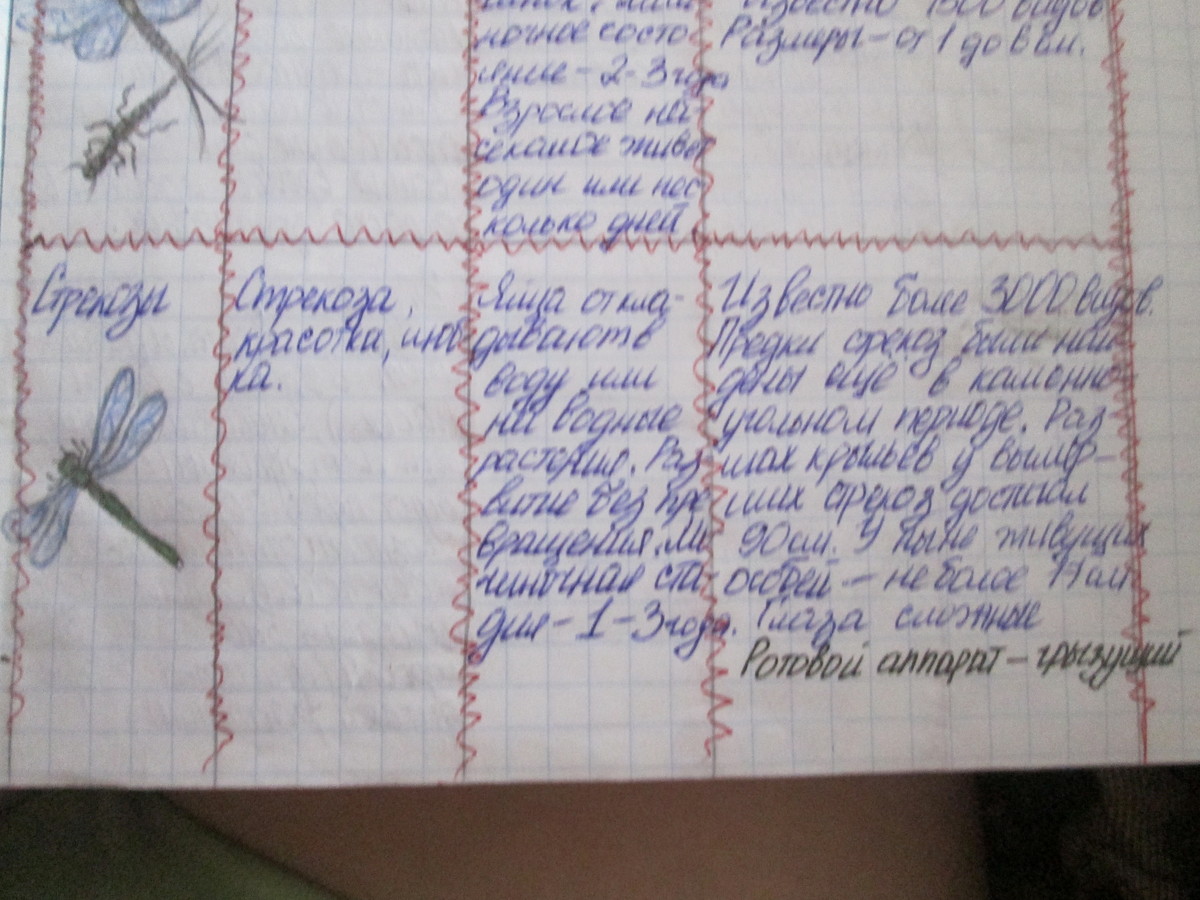 ночное состо-
яние - 2-3 года
Взрослое на-
секомое живет
один или нес-
колько дней.
Известно 1500 видов
Размеры - от 1 до 6 см.
Стрекозы
Стрекоза,
красотка,
ка.
Яйца откла-
дывают в
воду или
на водные
растения. Раз-
витие без пре-
вращения. Ли-
чиночная ста-
дия - 1-3 года.
Известно более 3000 видов.
Предки стрекоз были най-
дены еще в каменно-
угольном периоде. Раз-
мах крыльев у вымер-
ших стрекоз достигал
90 см. У ныне живущих
особей - не более
Глаза сложные
Ротовой аппарат - грызущий